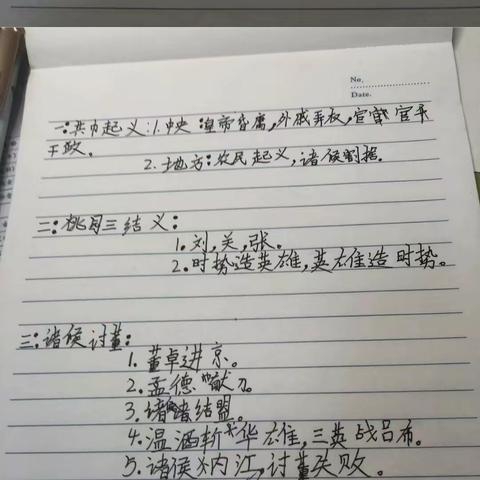 No.
Date.
一:共巾起义:1.中央:皇帝昏庸,外戚弄权,宦官
干政。
2.地方:农民起义,诸侯割据。
二:桃园三结义:
1.刘,关,张。
2.时势造英雄,英雄造时势。
三:诸侯讨董:
1.董卓进京。
2.孟德献刀。
3.诸结盟。
4.温酒斩华雄,三英战吕布。
5.诸侯内江,讨董失败。